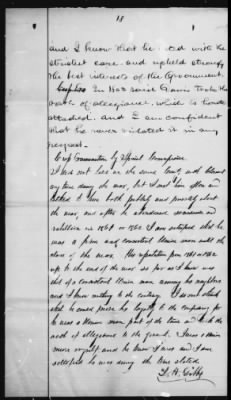 18
and I know that he did with the
strictest care and upheld strongly
the best interests of the Government.
In 1863 said Gavin took the
oath of allegiance, which is hereto
attached. and I am confident
that he never violated it in any
respect.
Cross Examination by Special Commissioner
I did not live in the same County with Claimant
any time during the war, but I met him often and
talked to him both publicly and privately about
the war, and after he abandoned secession and
rebellion in 1861 or 1862 I am satisfied that he
was a firm and consistent Union man until the
close of the war. His reputation from 1861 or 1862
up to the end of the war so far as I know was
that of a consistent Union man among his neighbors
and I know nothing to the contrary. I
that he his loyalty to the Confederacy for
he was a Union man part of the time and took the
oath of allegiance to the I was a Union
man myself and he knew I was and I am
satisfied he was during the time stated.